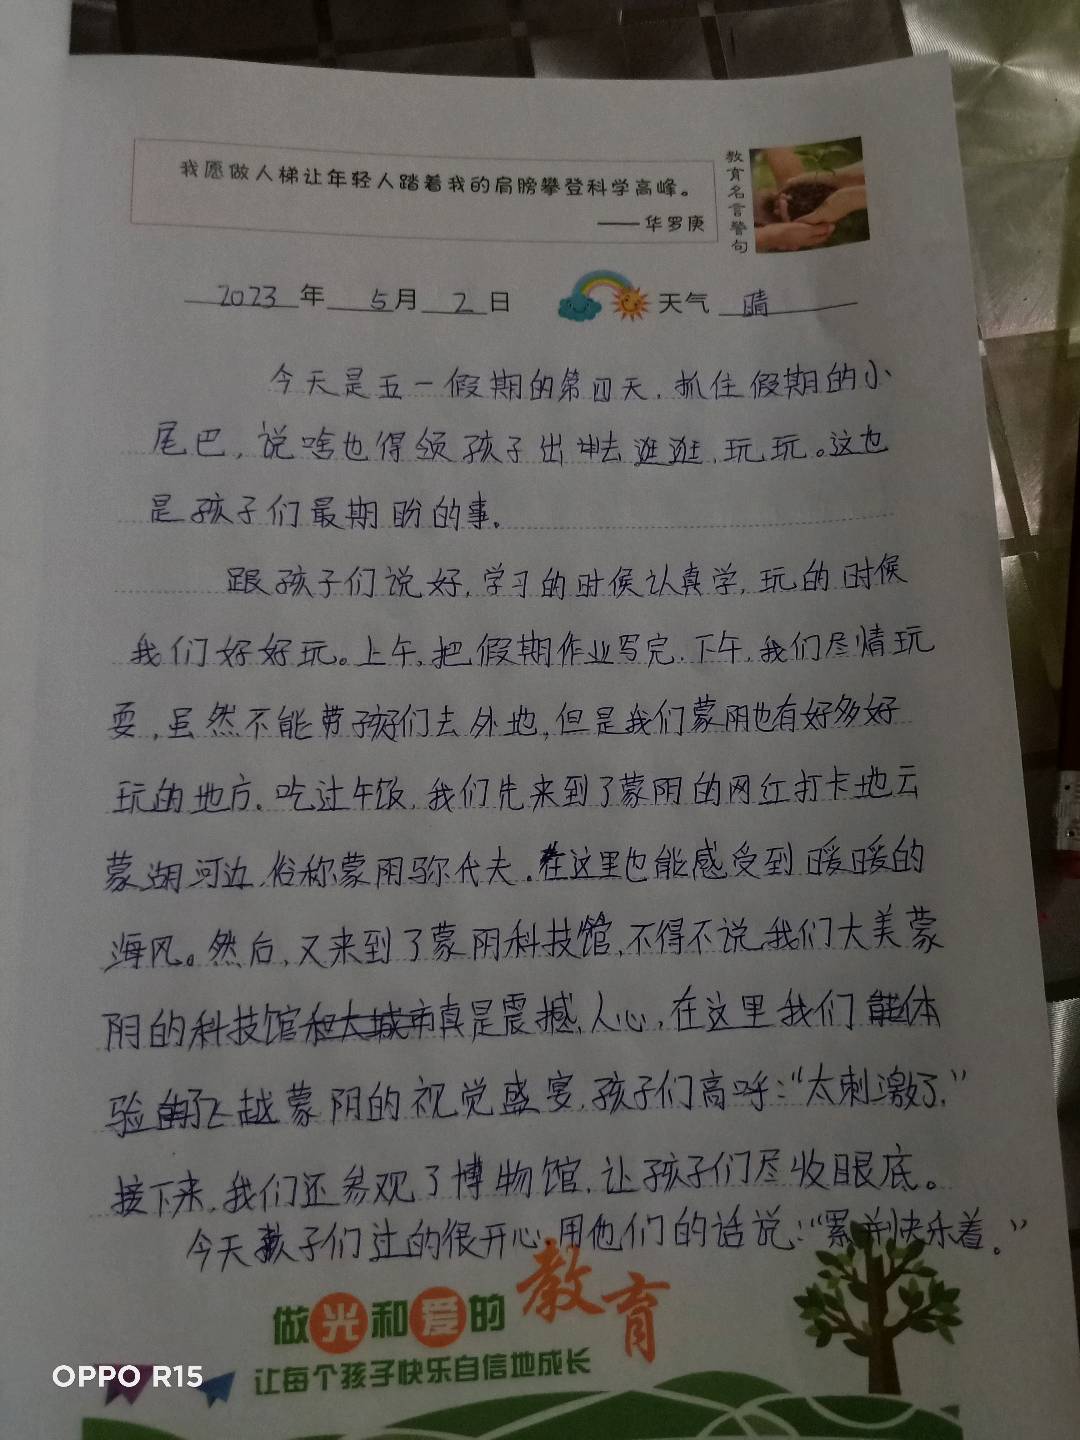 我愿做人梯让年轻人踏着我的肩膀攀登科学高峰。
——华罗庚
教育名言警句
2023年5月2日 天气 晴
今天是五一假期的第四天,抓住假期的小
尾巴,说啥也得领孩子出去逛逛,玩玩。这也
是孩子们最期盼的事。
跟孩子们说好,学习的时候认真学,玩的时候
我们好好玩。上午,把假期作业写完,下午,我们尽情玩
耍,虽然不能带孩子们去外地,但是我们蒙阴也有好多好
玩的地方。吃过午饭,我们先来到了蒙阴的网红打卡地云
蒙湖河边,俗称蒙阴马尔代夫。在这里也能感受到暖暖的
海风。然后,又来到了蒙阴科技馆,不得不说,我们大美蒙
阴的科技馆真是震撼人心,在这里我们体
验了飞越蒙阴的视觉盛宴,孩子们高呼:“太刺激了,”
接下来,我们还参观了博物馆,让孩子们尽收眼底。
今天孩子们过的很开心,用他们的话说:“累并快乐着。”
做光和爱的教育
让每个孩子快乐自信地成长
OPPO R15